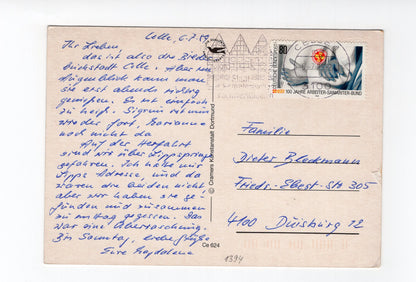 Celle, 6.7.89.
Ihr Lieben,
das ist also die Bieder
Augenblick kann man
sie erst abends richtig
genießen. Es ist einfach
zu heiß. Sigrun ist nun
wieder fort, Marianne
noch nicht da
Auf der Herfahrt
sind wir über Lippspringe
gefahren. Ich hatte nur
Lipps Adresse, und da
waren die beiden nicht
aber wir haben sie ge-
funden und zusammen
zu mittag gegessen. Das
war eine Überraschung.
Bis Sonntag, liebe Grüße
Eure Magdalena
© Cramers Kunstanstalt Dortmund
Ce 624
80
Deutsche Bundespost
100 JAHRE ARBEITER-SAMARITER-BUND
Familie
Dieter Bleckmann
Friedr.-Ebert-Str 305
4100 Duisburg 12
1394